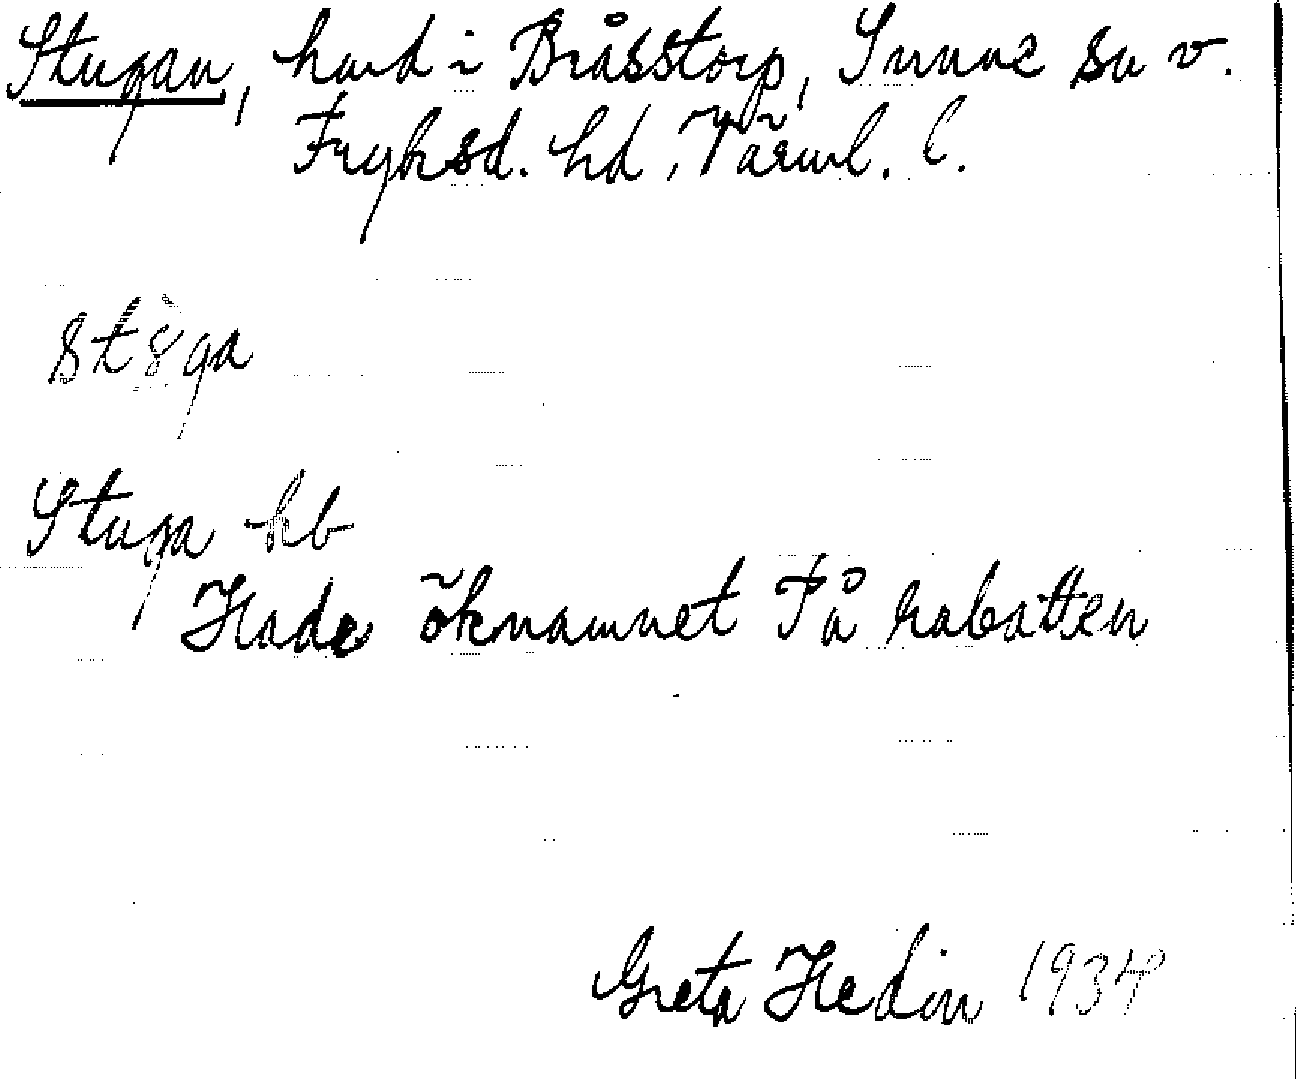 Stugan, hmd i Bråsstorp, Sunne sn v.
Fryksd. hd, Värml. l.
Stuga hb
Hade öknamnet På rabatten
Greta Hedin 1934